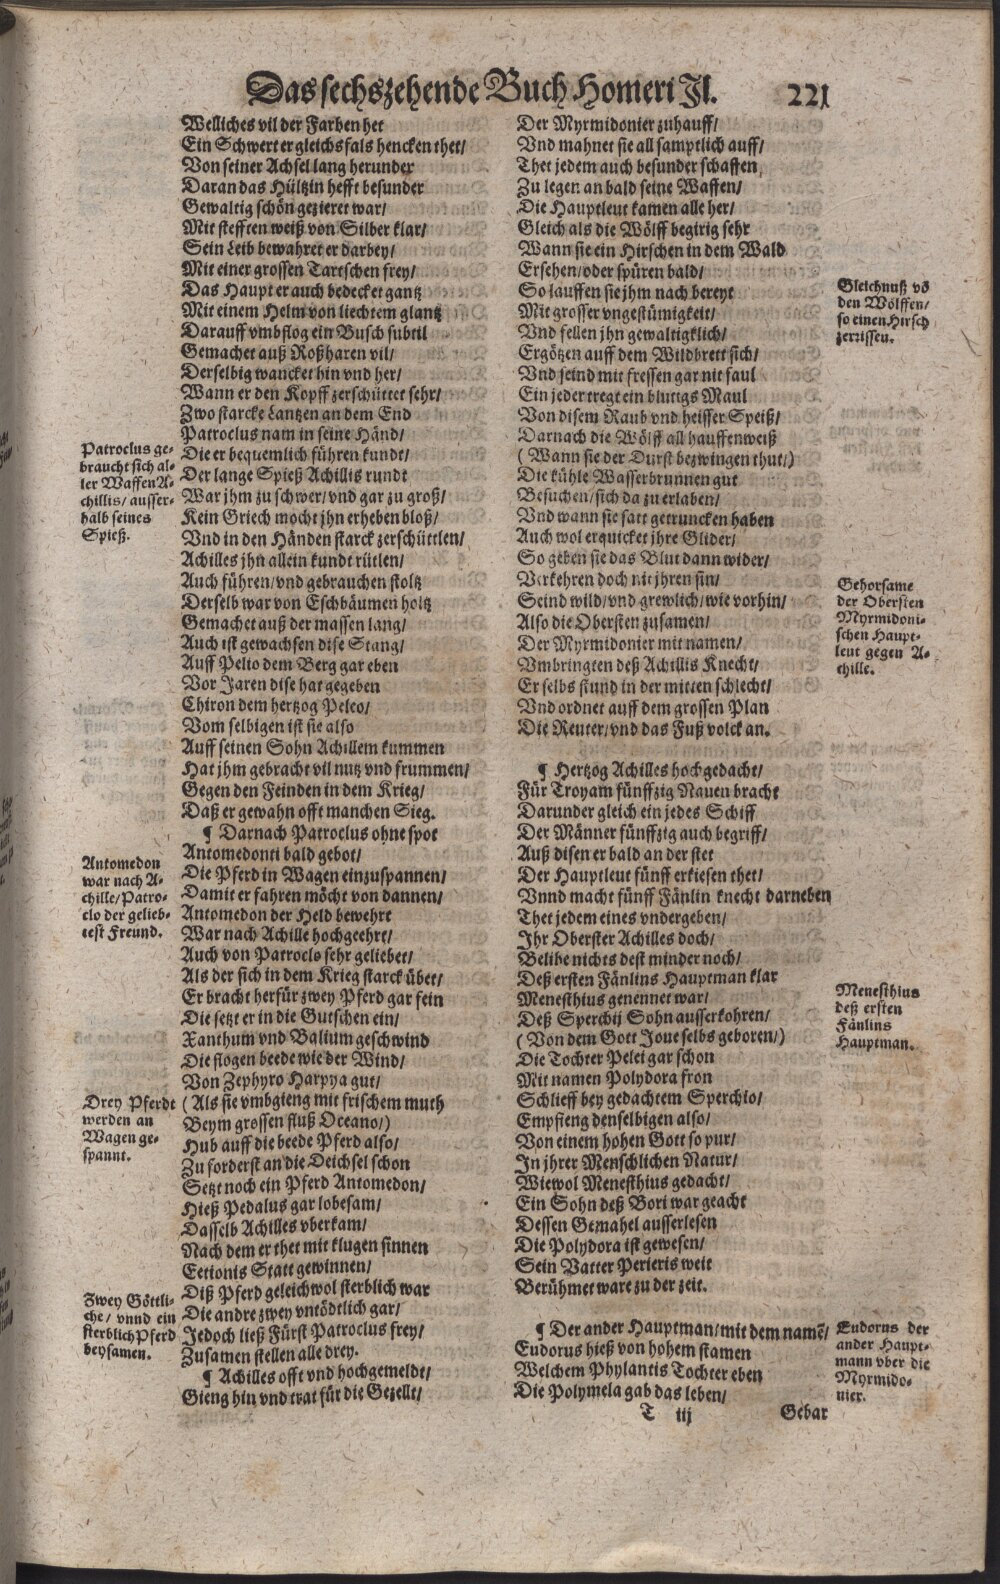 Das sechszehende Buch Homeri Il. 221
Welliches vil der Farben het
Ein Schwert er gleichsfals hencken thet/
Von seiner Achsel lang herunder
Daran das Hültzin hefft besunder
Gewaltig schön gezieret war/
Mit stefften weiß von Silber klar/
Sein Leib bewahret er darbey/
Mit einer grossen Tartschen frey/
Das Haupt er auch bedecket gantz
Mit einem Helm von liechtem glantz
Darauff vmbflog ein Busch subtil
Gemachet auß Roßharen vil/
Derselbig wancket hin vnd her/
Wann er den Kopff zerschüttet sehr/
Zwo starcke Lantzen an dem End
Patroclus nam in seine Händ/
Die er bequemlich führen kundt/
Der lange Spieß Achillis rundt
War jhm zu schwer/ vnd gar zu groß/
Kein Griech mocht jhn erheben bloß/
Vnd in den Händen starck zerschüttlen/
Achilles jhn allein kundt rütlen/
Auch führen/ vnd gebrauchen stoltz
Derselb war von Eschbäumen holtz
Gemachet auß der massen lang/
Auch ist gewachsen dise Stang/
Auff Pelio dem Berg gar eben
Vor Jaren dise hat gegeben
Chiron dem hertzog Peleo/
Vom selbigen ist sie also
Auff seinen Sohn Achillem kummen
Hat jhm gebracht vil nutz vnd frummen/
Gegen den Feinden in dem Krieg/
Daß er gewahn offt manchen Sieg.
¶ Darnach Patroclus ohne spot
Antomedonti bald gebot/
Die Pferd in Wagen einzuspannen/
Damit er fahren möcht von dannen/
Antomedon der Held bewehrt
War nach Achille hochgeehrt/
Auch von Patroclo sehr geliebet/
Als der sich in dem Krieg starck übet/
Er bracht herfür zwey Pferd gar fein
Die setzt er in die Gutschen ein/
Xanthum vnd Balium geschwind
Die flogen beede wie der Wind/
Von Zephyro Harpya gut/
(Als sie vmbgieng mit frischem muth
Beym grossen fluß Oceano/)
Hub auff die beede Pferd also/
Zu forderst an die Deichsel schon
Setzt noch ein Pferd Antomedon/
Hieß Pedalus gar lobesam/
Dasselb Achilles vberkam/
Nach dem er thet mit klugen sinnen
Eetionis Statt gewinnen/
Diß Pferd geleichwol sterblich war
Die andre zwey vntödtlich gar/
Jedoch ließ Fürst Patroclus frey/
Zusamen stellen alle drey.
¶ Achilles offt vnd hochgemeldt/
Gieng hin vnd trat für die Gezellt/
Patroclus ge-
braucht sich al-
ler Waffen A-
chillis/ ausser-
halb seines
Spieß.
Antomedon
war nach A-
chille/ Patro-
clo der gelieb-
test Freund.
Drey Pferdt
werden an
Wagen ge-
spannt.
Zwey Göttli-
che/ vnnd ein
sterblich Pferd
beysamen.
Der Myrmidonier zuhauff/
Vnd mahnet sie all samptlich auff/
Thet jedem auch besunder schaffen
Zu legen an bald seine Waffen/
Die Hauptleut kamen alle her/
Gleich als die Wölff begirig sehr
Wann sie ein Hirschen in dem Wald
Ersehen/ oder spüren bald/
So lauffen sie jhm nach bereyt
Mit grosser vngestümigkeit/
Vnd fellen jhn gewaltigklich/
Ergötzen auff dem Wildbrett sich/
Vnd seind mit fressen gar nit faul
Ein jeder tregt ein blutigs Maul
Von disem Raub vnd heisser Speiß/
Darnach die Wölff all hauffenweiß
(Wann sie der Durst bezwingen thut/)
Die kühle Wasserbrunnen gut
Besuchen/ sich da zu erlaben/
Vnd wann sie satt getruncken haben
Auch wol erquicket jhre Glider/
So geben sie das Blut dann wider/
Verkehren doch nit jhren sin/
Seind wild/ vnd grewlich/ wie vorhin/
Also die Obersten zusamen/
Der Myrmidonier mit namen/
Vmbringten deß Achillis Knecht/
Er selbs stund in der mitten schlecht/
Vnd ordnet auff dem grossen Plan
Die Reuter/ vnd das Fuß volck an.
¶ Hertzog Achilles hochgedacht/
Für Troyam fünffzig Nauen bracht
Darunder gleich ein jedes Schiff
Der Männer fünffzig auch begriff/
Auß disen er bald an der stet
Der Hauptleut fünff erkiesen thet/
Vnnd macht fünff Fänlin knecht darneben
Thet jedem eines vndergeben/
Ihr Oberster Achilles doch/
Belibe nichts dest minder noch/
Deß ersten Fänlins Hauptman klar
Menesthius genennet war/
Deß Sperchij Sohn ausserkohren/
(Von dem Gott Joue selbs geboren/)
Die Tochter Pelei gar schon
Mit namen Polydora fron
Schlieff bey gedachtem Sperchio/
Empfieng denselbigen also/
Von einem hohen Gott so pur/
In jhrer Menschlichen Natur/
Wiewol Menesthius gedacht/
Ein Sohn deß Bori war geacht
Dessen Gemahel ausserlesen
Die Polydora ist gewesen/
Sein Vatter Perieris weit
Berühmet ware zu der zeit.
¶ Der ander Hauptman/ mit dem namẽ/
Eudorus hieß von hohem stamen
Welchem Phylantis Tochter eben
Die Polymela gab das leben/
Gleichnuß võ
den Wölffen/
so einen Hirsch
zerrissen.
Gehorsame
der Obersten
Myrmidoni-
schen Haupt-
leut gegen A-
chille.
Menesthius
deß ersten
Fänlins
Hauptman.
Eudorus der
ander Haupt-
mann vber die
Myrmido-
nier.
T iij Gebar